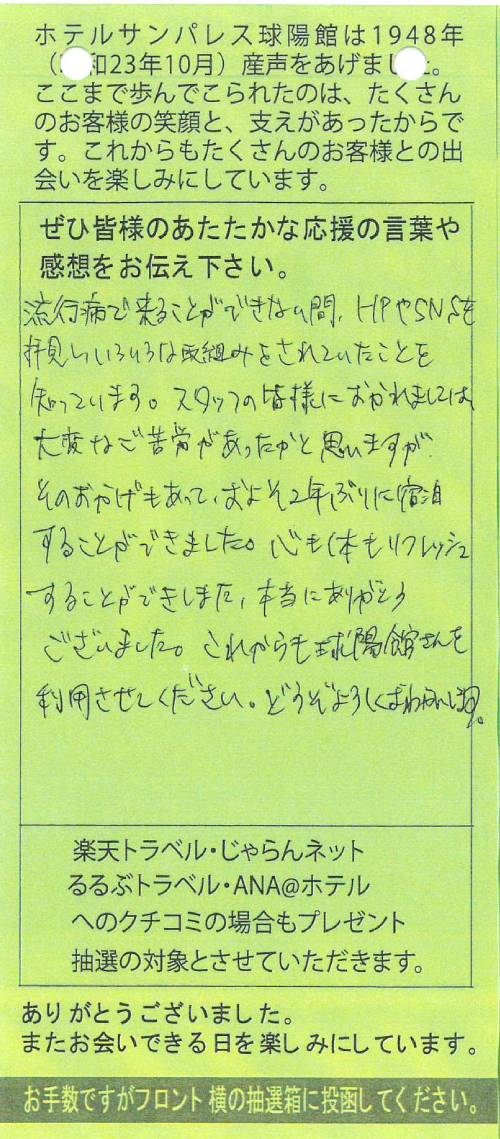 ホテルサンパレス球陽館は1948年
（和23年10月）産声をあげました。
ここまで歩んでこられたのは、たくさん
のお客様の笑顔と、支えがあったからで
す。これからもたくさんのお客様との出
会いを楽しみにしています。
ぜひ皆様のあたたかな応援の言葉や
感想をお伝え下さい。
流行病で来ることができない間、HPやSNSを
拝見しいろいろな取組みをされていたことを
知っています。スタッフの皆様におかれましては、
大変なご苦労があったかと思いますが
そのおかげもあって、およそ2年ぶりに宿泊
することができました。心も体もリフレッシュ
することができました、本当にありがとう
ございました。これからも球陽館さんを
利用させてください。どうぞよろしくおねがいします。
楽天トラベル・じゃらんネット
るるぶトラベル・ANA@ホテル
へのクチコミの場合もプレゼント
抽選の対象とさせていただきます。
ありがとうございました。
またお会いできる日を楽しみにしています。
お手数ですがフロント横の抽選箱に投函してください。